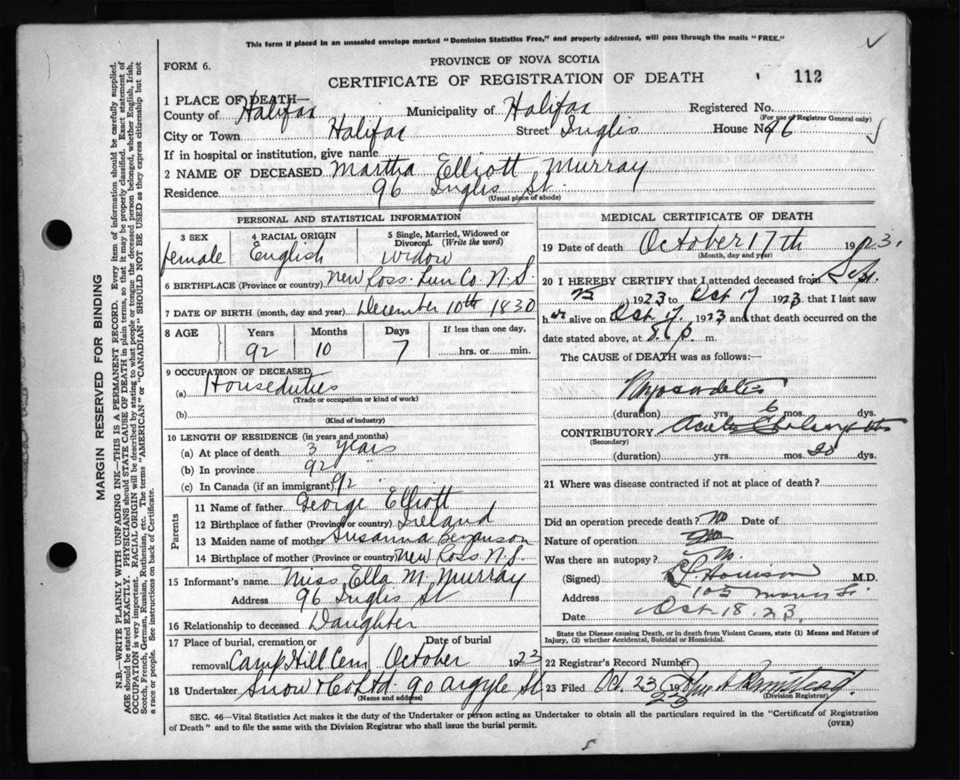 This form if placed in an unsealed envelope marked "Dominion Statistics Free," and properly addressed, will pass through the mails "FREE."
FORM 6.
PROVINCE OF NOVA SCOTIA
CERTIFICATE OF REGISTRATION OF DEATH
112
1 PLACE OF DEATH—
County of Halifax Municipality of Halifax Registered No.
(For use of Registrar General only)
City or Town Halifax Street Inglis House No 96
If in hospital or institution, give name
2 NAME OF DECEASED Martha Elliott Murray
Residence 96 Inglis St.
(Usual place of abode)
PERSONAL AND STATISTICAL INFORMATION
3 SEX 4 RACIAL ORIGIN 5 Single, Married, Widowed or Divorced. (Write the word)
female English widow
6 BIRTHPLACE (Province or country) New Ross Lun Co N.S.
7 DATE OF BIRTH (month, day and year) December 10th 1830
8 AGE Years Months Days If less than one day,
92 10 7 hrs. or min.
9 OCCUPATION OF DECEASED
(a) Houseduties
(Trade or occupation or kind of work)
(b)
(Kind of industry)
10 LENGTH OF RESIDENCE (in years and months)
(a) At place of death 3 years
(b) In province 92 "
(c) In Canada (if an immigrant) 92 "
Parents
11 Name of father George Elliott
12 Birthplace of father (Province or country) Ireland
13 Maiden name of mother Susanna
14 Birthplace of mother (Province or country) New Ross N.S.
15 Informant's name Miss Ella M. Murray
Address 96 Inglis St
16 Relationship to deceased Daughter
17 Place of burial, cremation or Date of burial
removal Camp Hill Cem October 1923
18 Undertaker Snow & Co Ltd 90 Argyle St
(Name and address)
MEDICAL CERTIFICATE OF DEATH
19 Date of death October 17th 1923.
(Month, day and year)
20 I HEREBY CERTIFY that I attended deceased from Sep.
1923 to Oct 17 1923 that I last saw
her alive on Oct 17 1923 and that death occurred on the
date stated above, at 8 p. m.
The CAUSE of DEATH was as follows:—
(duration) yrs. 6 mos. dys.
CONTRIBUTORY Acute
(Secondary)
(duration) yrs. mos. 20 dys.
21 Where was disease contracted if not at place of death?
Did an operation precede death? No Date of
Nature of operation
Was there an autopsy? No.
(Signed) M.D.
Address 105 Morris St.
Date Oct. 18. 23.
State the Disease causing Death, or in death from Violent Causes, state (1) Means and Nature of
Injury, (2) whether Accidental, Suicidal or Homicidal.
22 Registrar's Record Number
23 Filed Oct. 23 23
(Division Registrar)
SEC. 46—Vital Statistics Act makes it the duty of the Undertaker or person acting as Undertaker to obtain all the particulars required in the "Certificate of Registration
of Death" and to file the same with the Division Registrar who shall issue the burial permit. (OVER)
MARGIN RESERVED FOR BINDING
N.B.—WRITE PLAINLY WITH UNFADING INK—THIS IS A PERMANENT RECORD. Every item of information should be carefully supplied.
AGE should be stated EXACTLY. PHYSICIANS should STATE CAUSE OF DEATH in plain terms, so that it may be properly classified. Exact statement of
OCCUPATION is very important. RACIAL ORIGIN will be described by stating to what people or tongue the deceased person belonged, whether English, Irish,
Scotch, French, German, Russian, Ruthenian, etc. The terms "AMERICAN" or "CANADIAN" SHOULD NOT BE USED as they express citizenship but not
a race or people. See instructions on back of Certificate.